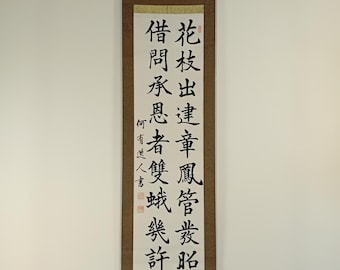 花枝出建章鳳管發昭
借問承恩者雙蛾幾許
何有人書